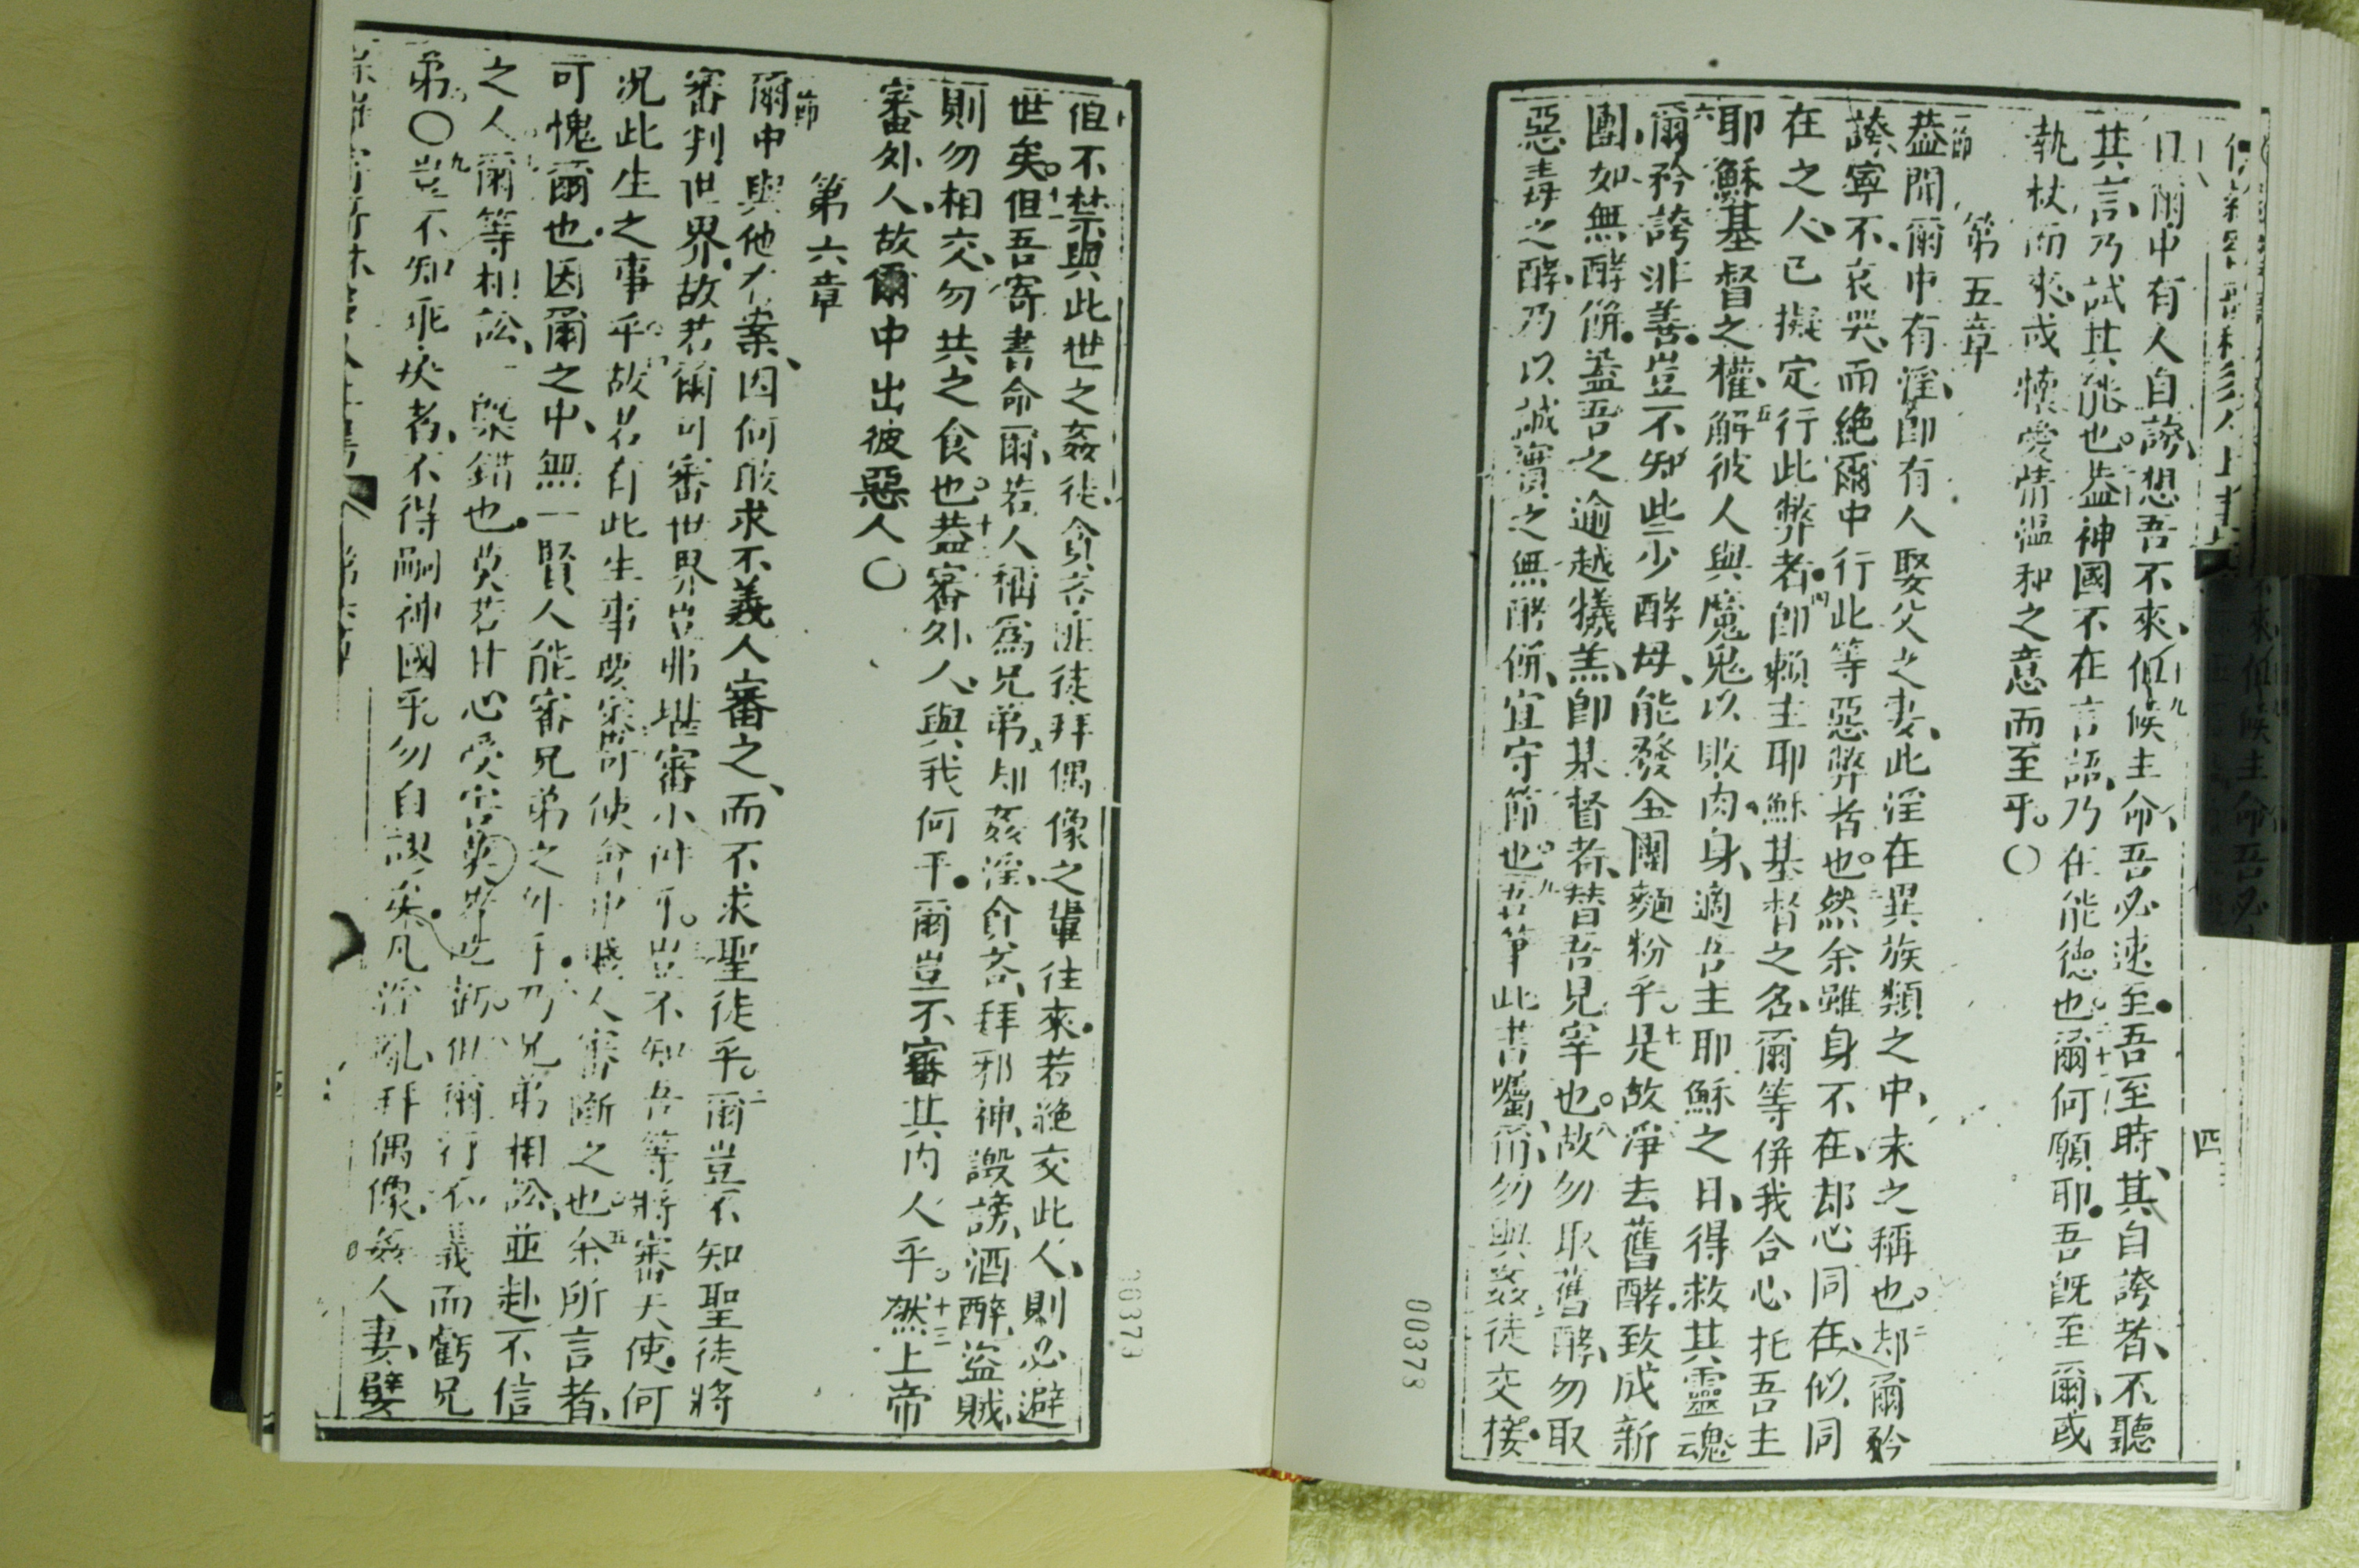 爾中有人自謗想吾不來但候主命吾必速至吾至時其自誇者不聽
其言乃試其能也蓋神國不在言語乃在能德也爾何願耶吾旣至爾或
執杖而來或懷愛情溫和之意而至乎○
第五章
一節
蓋聞爾中有淫卽有人娶父之妻此淫在異族類之中未之稱也二却爾矜
誇寧不哀哭而絕爾中行此等惡弊者也三然余雖身不在却心同在似同
在之人已擬定行此弊者四卽賴主耶穌基督之名爾等併我合心托吾主
耶穌基督之權五解彼人與魔鬼以敗肉身適吾主耶穌之日得救其靈魂
六爾矜誇非善豈不知些少酵母能發全團麵粉乎七是故淨去舊酵致成新
團如無酵餅蓋吾之逾越犧羔卽基督者替吾見宰也八故勿取舊酵勿取
惡毒之酵乃以誠實之無酵餅宜守節也九吾筆此書囑爾勿與姦徒交接
但不禁與此世之姦徒貪吝徒拜偶像之輩往來若絕交此人則必避
世矣十一但吾寄書命爾若人稱爲兄弟却姦淫貪吝拜邪神譭謗酒醉盜賊
則勿相交勿共之食也十二蓋審外人與我何干爾豈不審其內人乎十三然上帝
審外人故爾中出彼惡人○
第六章
節
爾中與他人案因何敢求不義人審之而不求聖徒乎二爾豈不知聖徒將
審判世界故若爾可審世界豈弗堪審小件乎三豈不知吾等將審天使何
況此生之事乎四故若有此生事要審可使會中賤人審斷之也五余所言者
可愧爾也因爾之中無一賢人能審兄弟之外乎六乃兄弟相訟並赴不信
之人七爾等相訟一槩錯也莫若甘心受害八但爾行不義而虧兄
弟○九豈不知乖戾者不得嗣神國乎勿自謬凡淫亂拜偶像姦人妻嬖
四
00373
00373